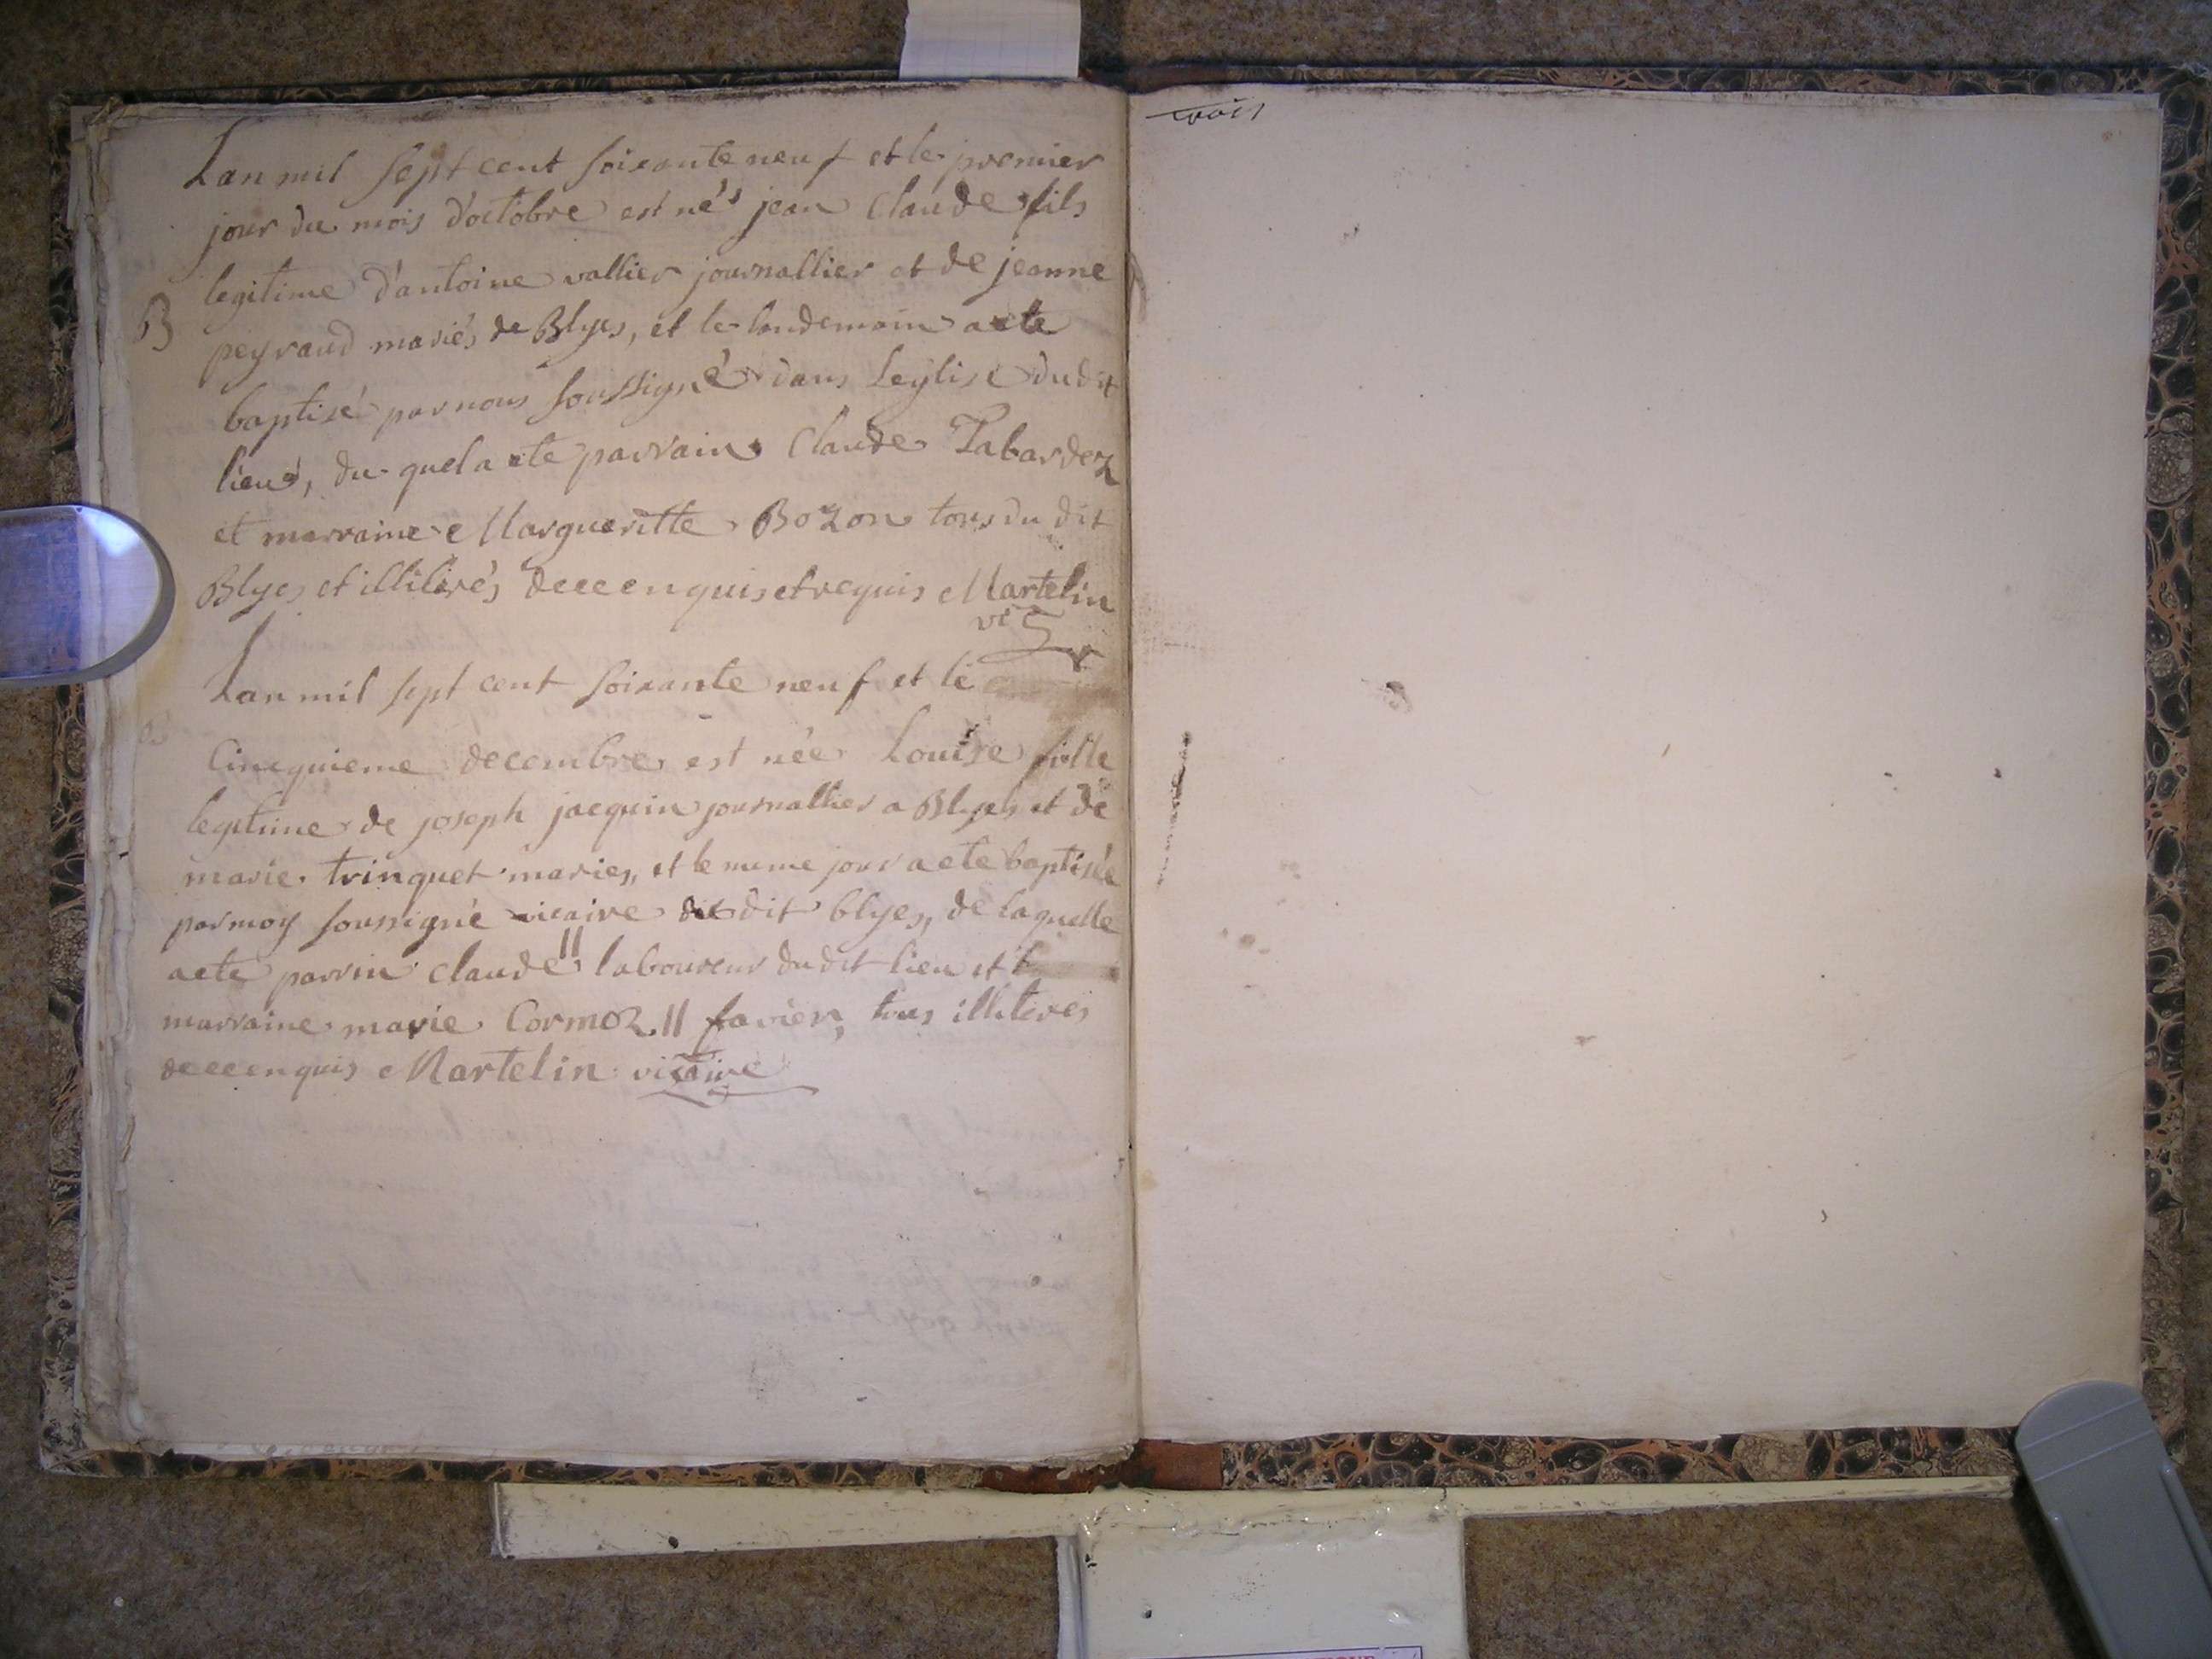 Lan mil sept cent soixante neuf et le premier
jour du mois d'octobre est nés jean Claude fils
legitime d'antoine vallier journallier et de jeanne
B
peyraud mariés de Blyes, et le landemain a ete
baptisé par nous soussigné dans Leglise du dit
lieu, du quel a ete parrain Claude Tabardez
et marraine Margueritte Bozon tous du dit
Blyes et illitirés de ce enquis et requis Martelin
vi
Lan mil sept cent soixante neuf et le
Cincquieme decembre est née Louise fille
legitime de joseph jacquin journallier a Blyes et de
marie trinquet maries, et le meme jour a ete baptisée
par moy soussigné vicaire du dit blyes, de laquelle
a ete parrin claude || laboureur du dit lieu et
marraine marie Cormoz || favier, tous illiteres
de ce enquis Martelin vicaire